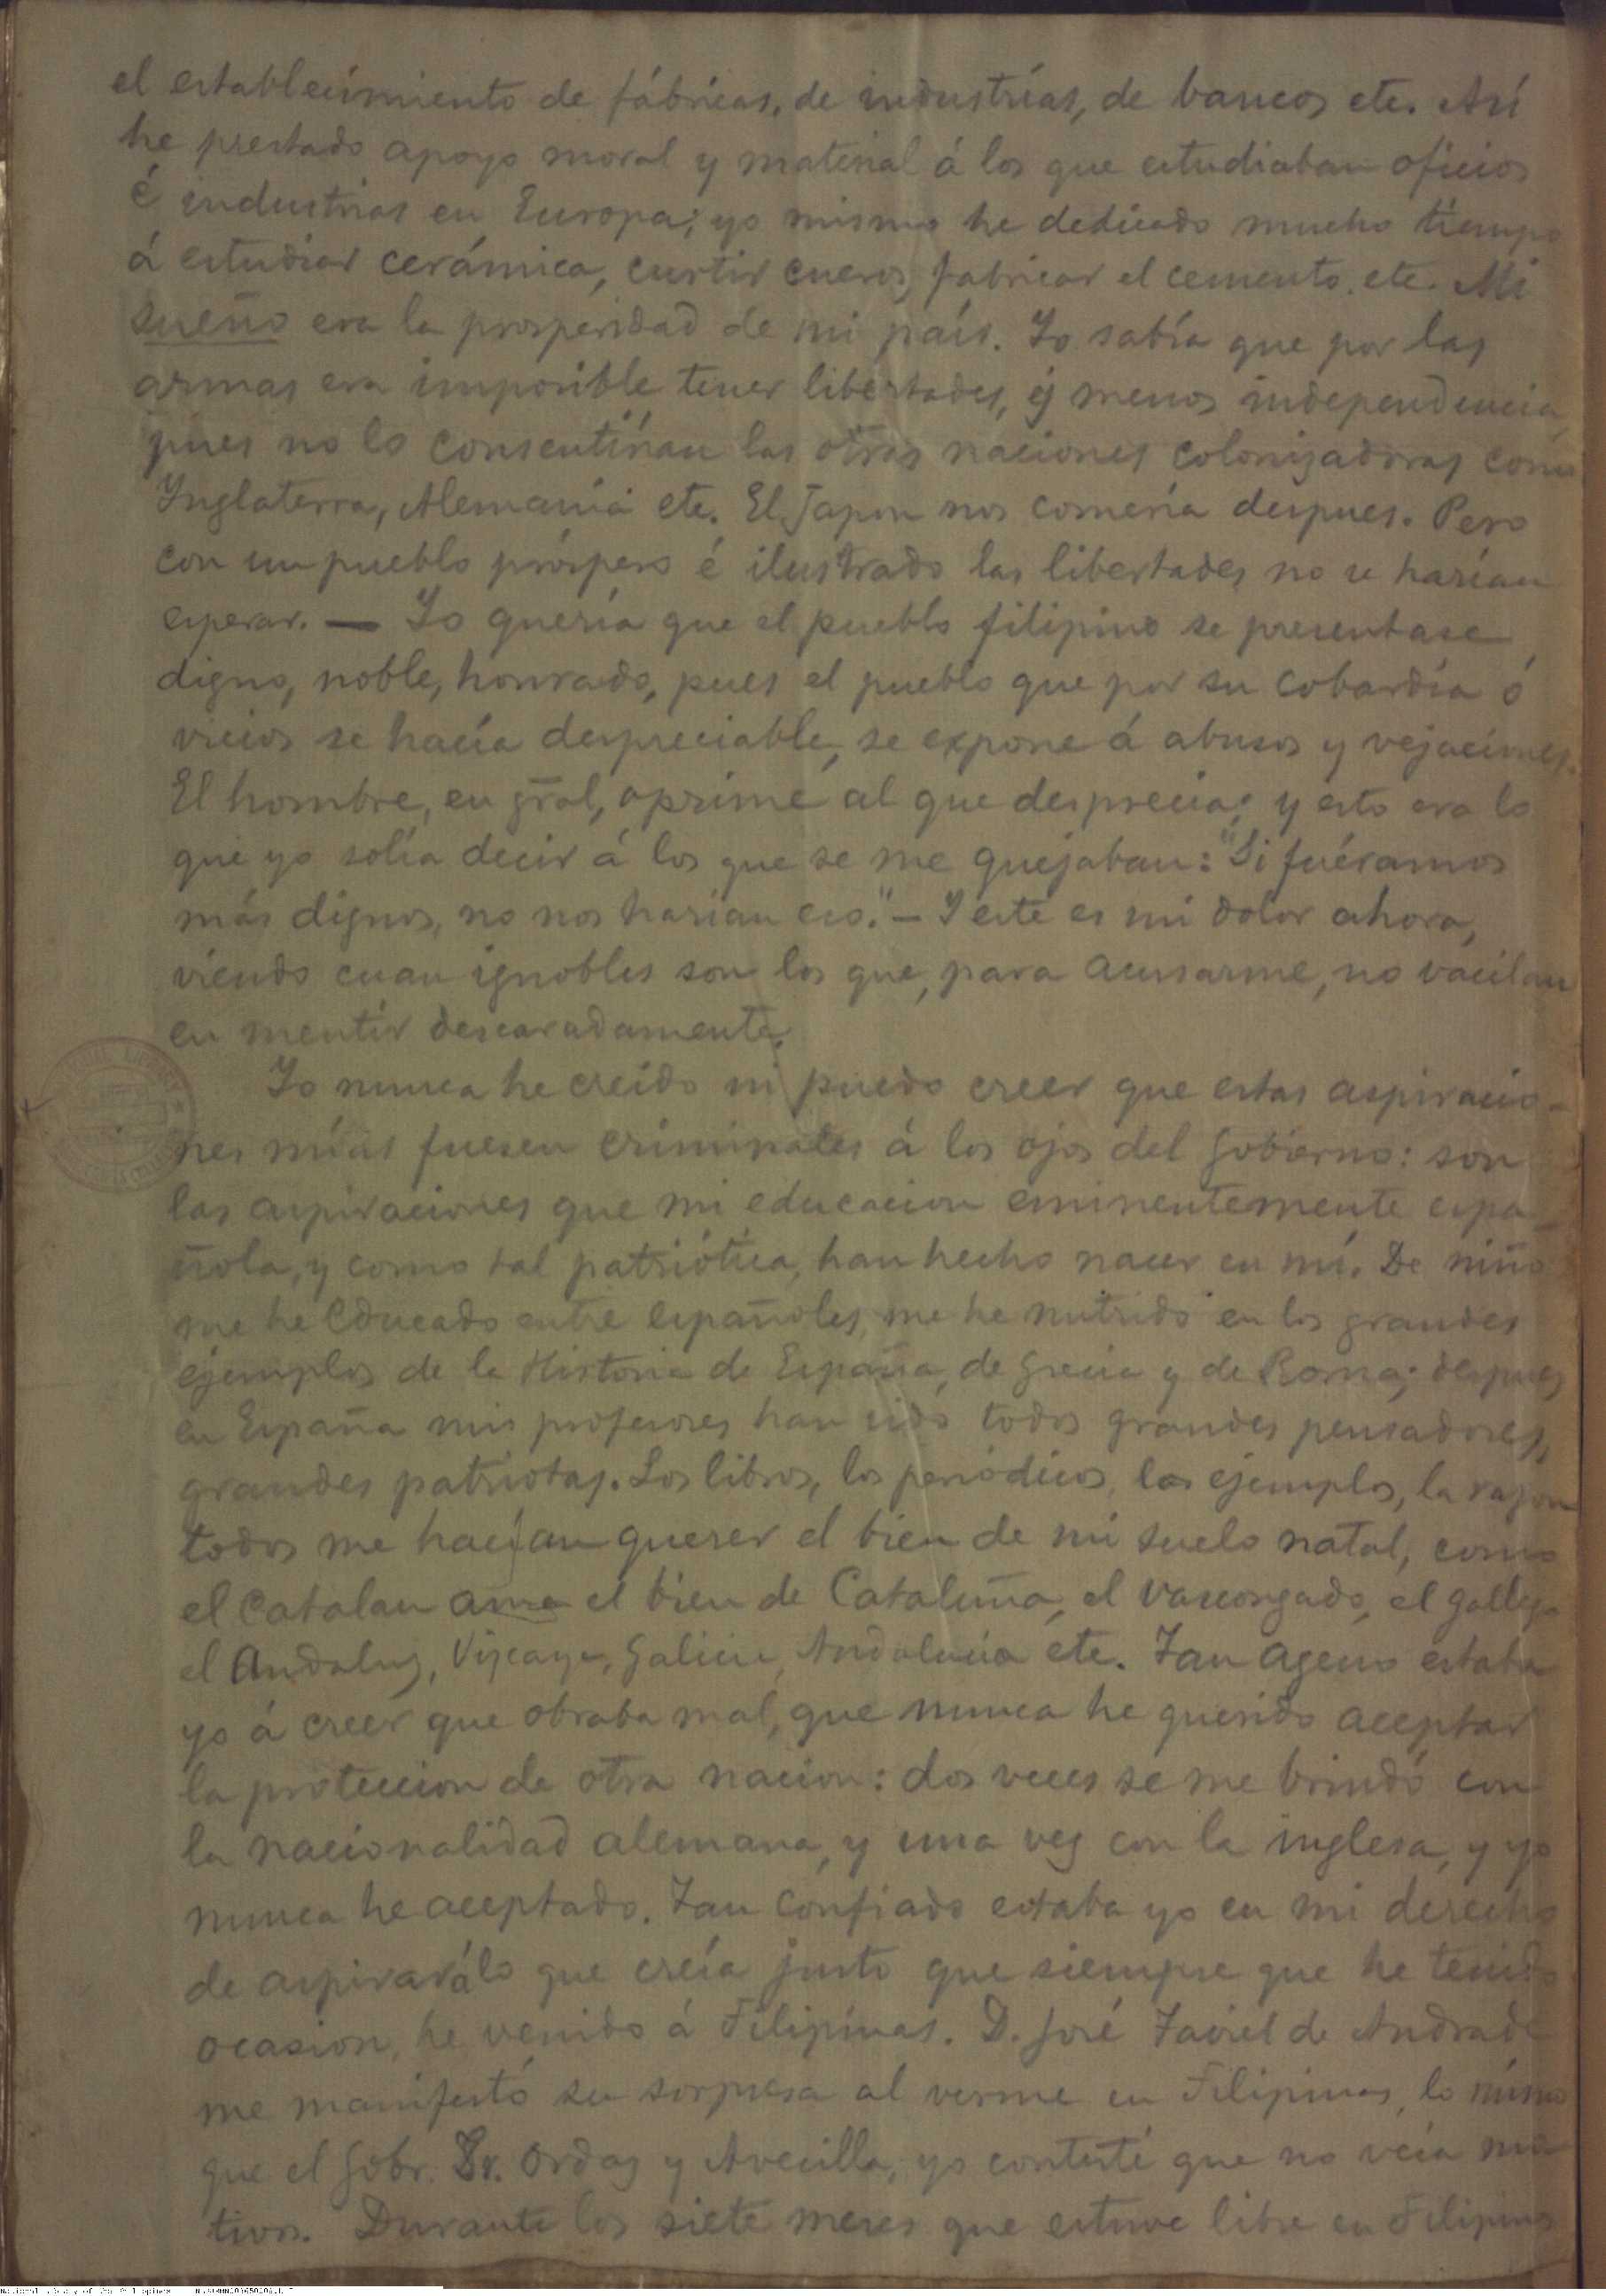 el establecimiento de fábricas, de industrias, de bancos etc. Así
he prestado apoyo moral y material á los que estudiaban oficios
é industrias en Europa; yo mismo he dedicado mucho tiempo
á estudiar cerámica, curtir cueros, fabricar el cemento. etc. Mi
sueño era la prosperidad de mi país. Yo sabía que por las
armas era imposible tener libertades, y menos independencia,
pues no lo consentirían las otras naciones colonizadoras como
Inglaterra, Alemania etc. El Japon nos comería despues. Pero
con un pueblo próspero é ilustrado las libertades no se harían
esperar. — Yo quería que el pueblo filipino se presentase
digno, noble, honrado, pues el pueblo que por su cobardía ó
vicios se hacía despreciable, se expone á abusos y vejaciones.
El hombre, en gral, oprime al que desprecia; y esto era lo
que yo solía decir á los que se me quejaban: "Si fuéramos
más dignos, no nos harían eso." — Y este es mi dolor ahora,
viendo cuan ignobles son los que, para acusarme, no vacilan
en mentir descaradamente.
Yo nunca he creido ni puedo creer que estas aspiracio-
nes mías fuesen criminales á los ojos del Gobierno: son
las aspiraciones que mi educacion eminentemente espa-
ñola, y como tal patriótica, han hecho nacer en mí. De niño
me he educado entre españoles, me he nutrido en los grandes
ejemplos de la Historia de España, de Grecia y de Roma; despues
en España mis profesores han sido todos grandes pensadores,
grandes patriotas. Los libros, los periódicos, los ejemplos, la razon
todos me hacían querer el bien de mi suelo natal, como
el Catalan ama el bien de Cataluña, el vascongado, el gallego
el Andaluz, Vizcaya, Galicia, Andalucía etc. Tan ageno estaba
yo á creer que obraba mal, que nunca he querido aceptar
la proteccion de otra nacion: dos veces se me brindó con
la nacionalidad alemana, y una vez con la inglesa, y yo
nunca he aceptado. Tan confiado estaba yo en mi derecho
de aspirar á lo que creía justo que siempre que he tenido
ocasion, he venido á Filipinas. D. José Taviel de Andrade
me manifestó su sorpresa al verme en Filipinas, lo mismo
que el Gobr. Sr. Ordaz y Avecilla, yo contesté que no veía mo-
tivos. Durante los siete meses que estuve libre en Filipinas